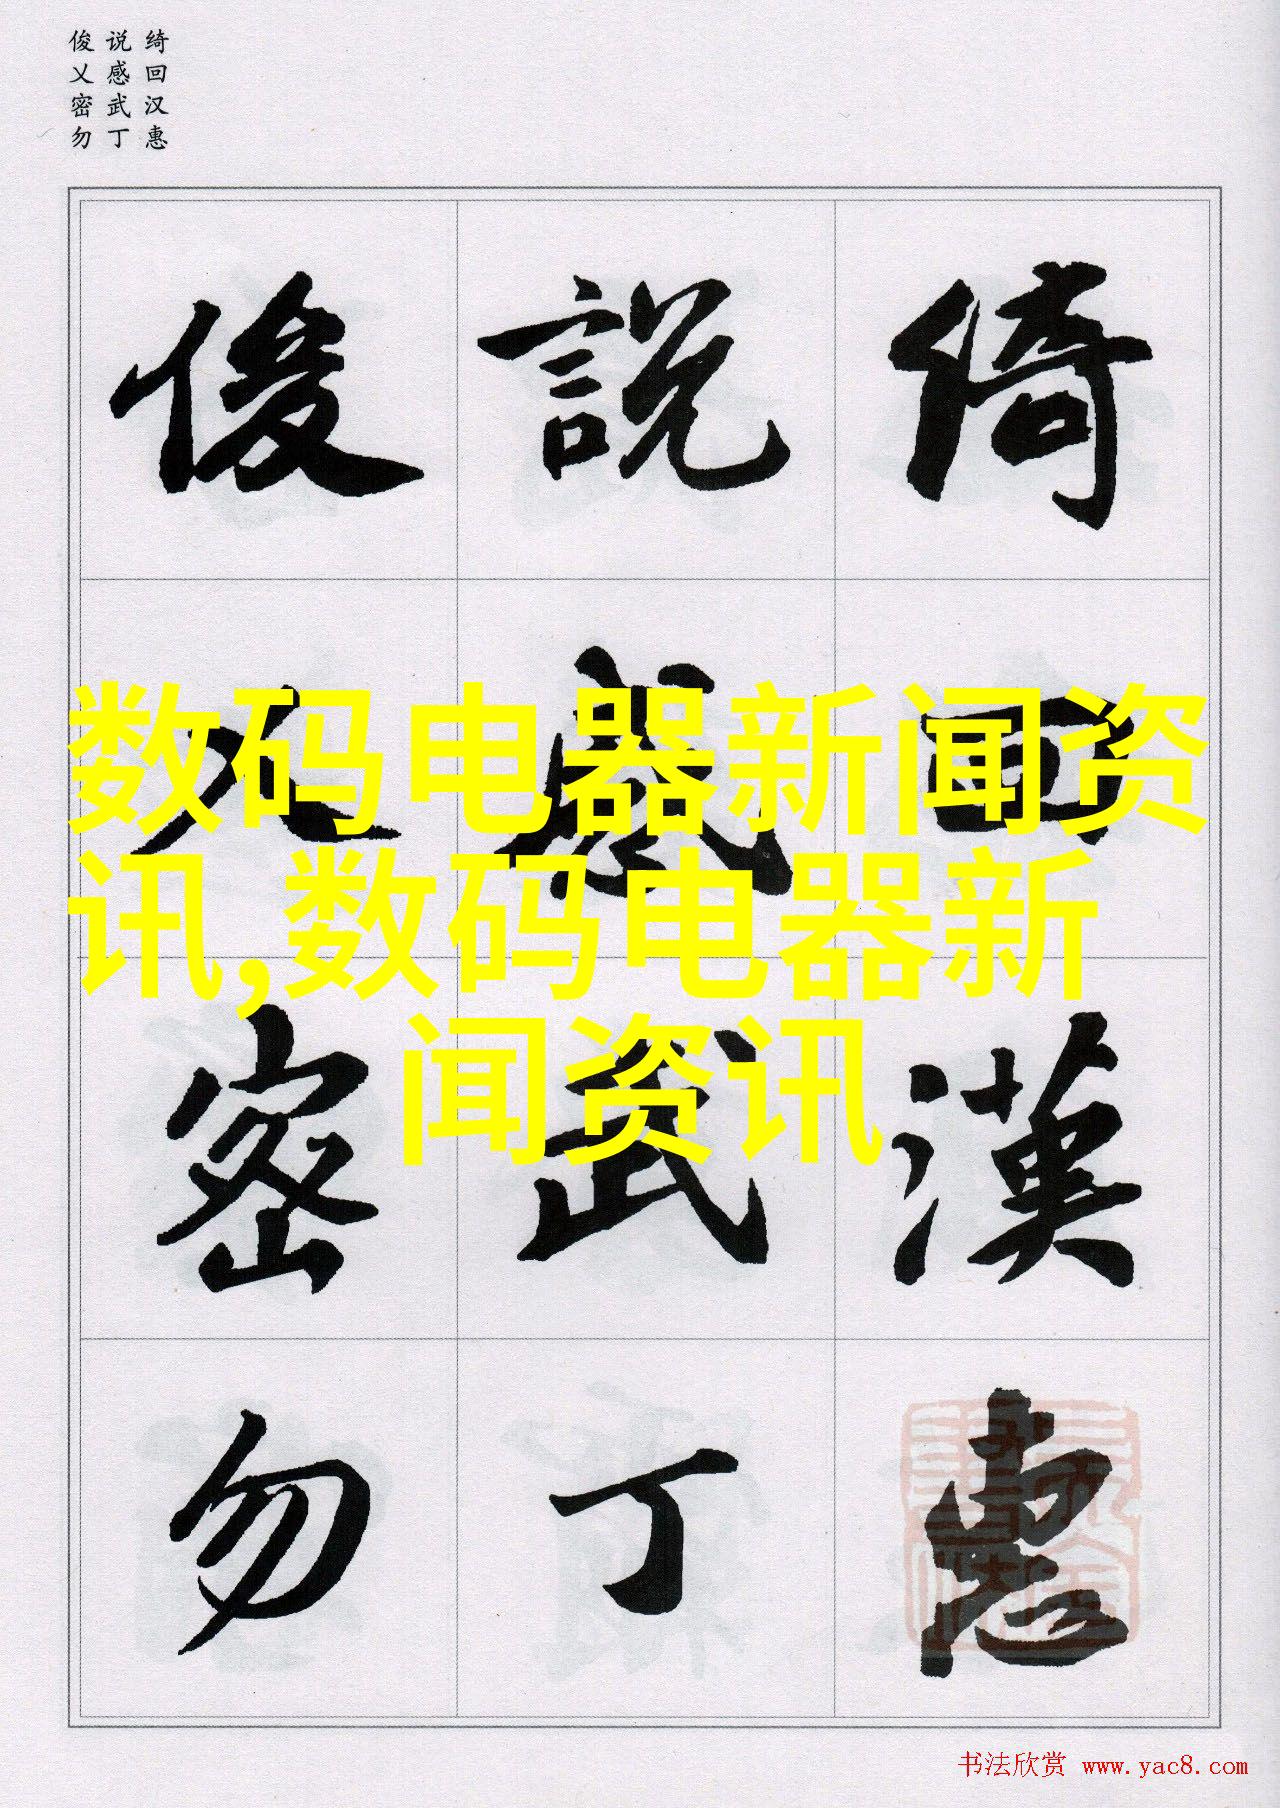 俊说绮
乂感回
密武汉
勿丁惠
俊說綺
乂感回
密武漢
勿丁惠
数码电器新闻资
讯,数码电器新
闻资讯
书法欣赏 www.yac8.com